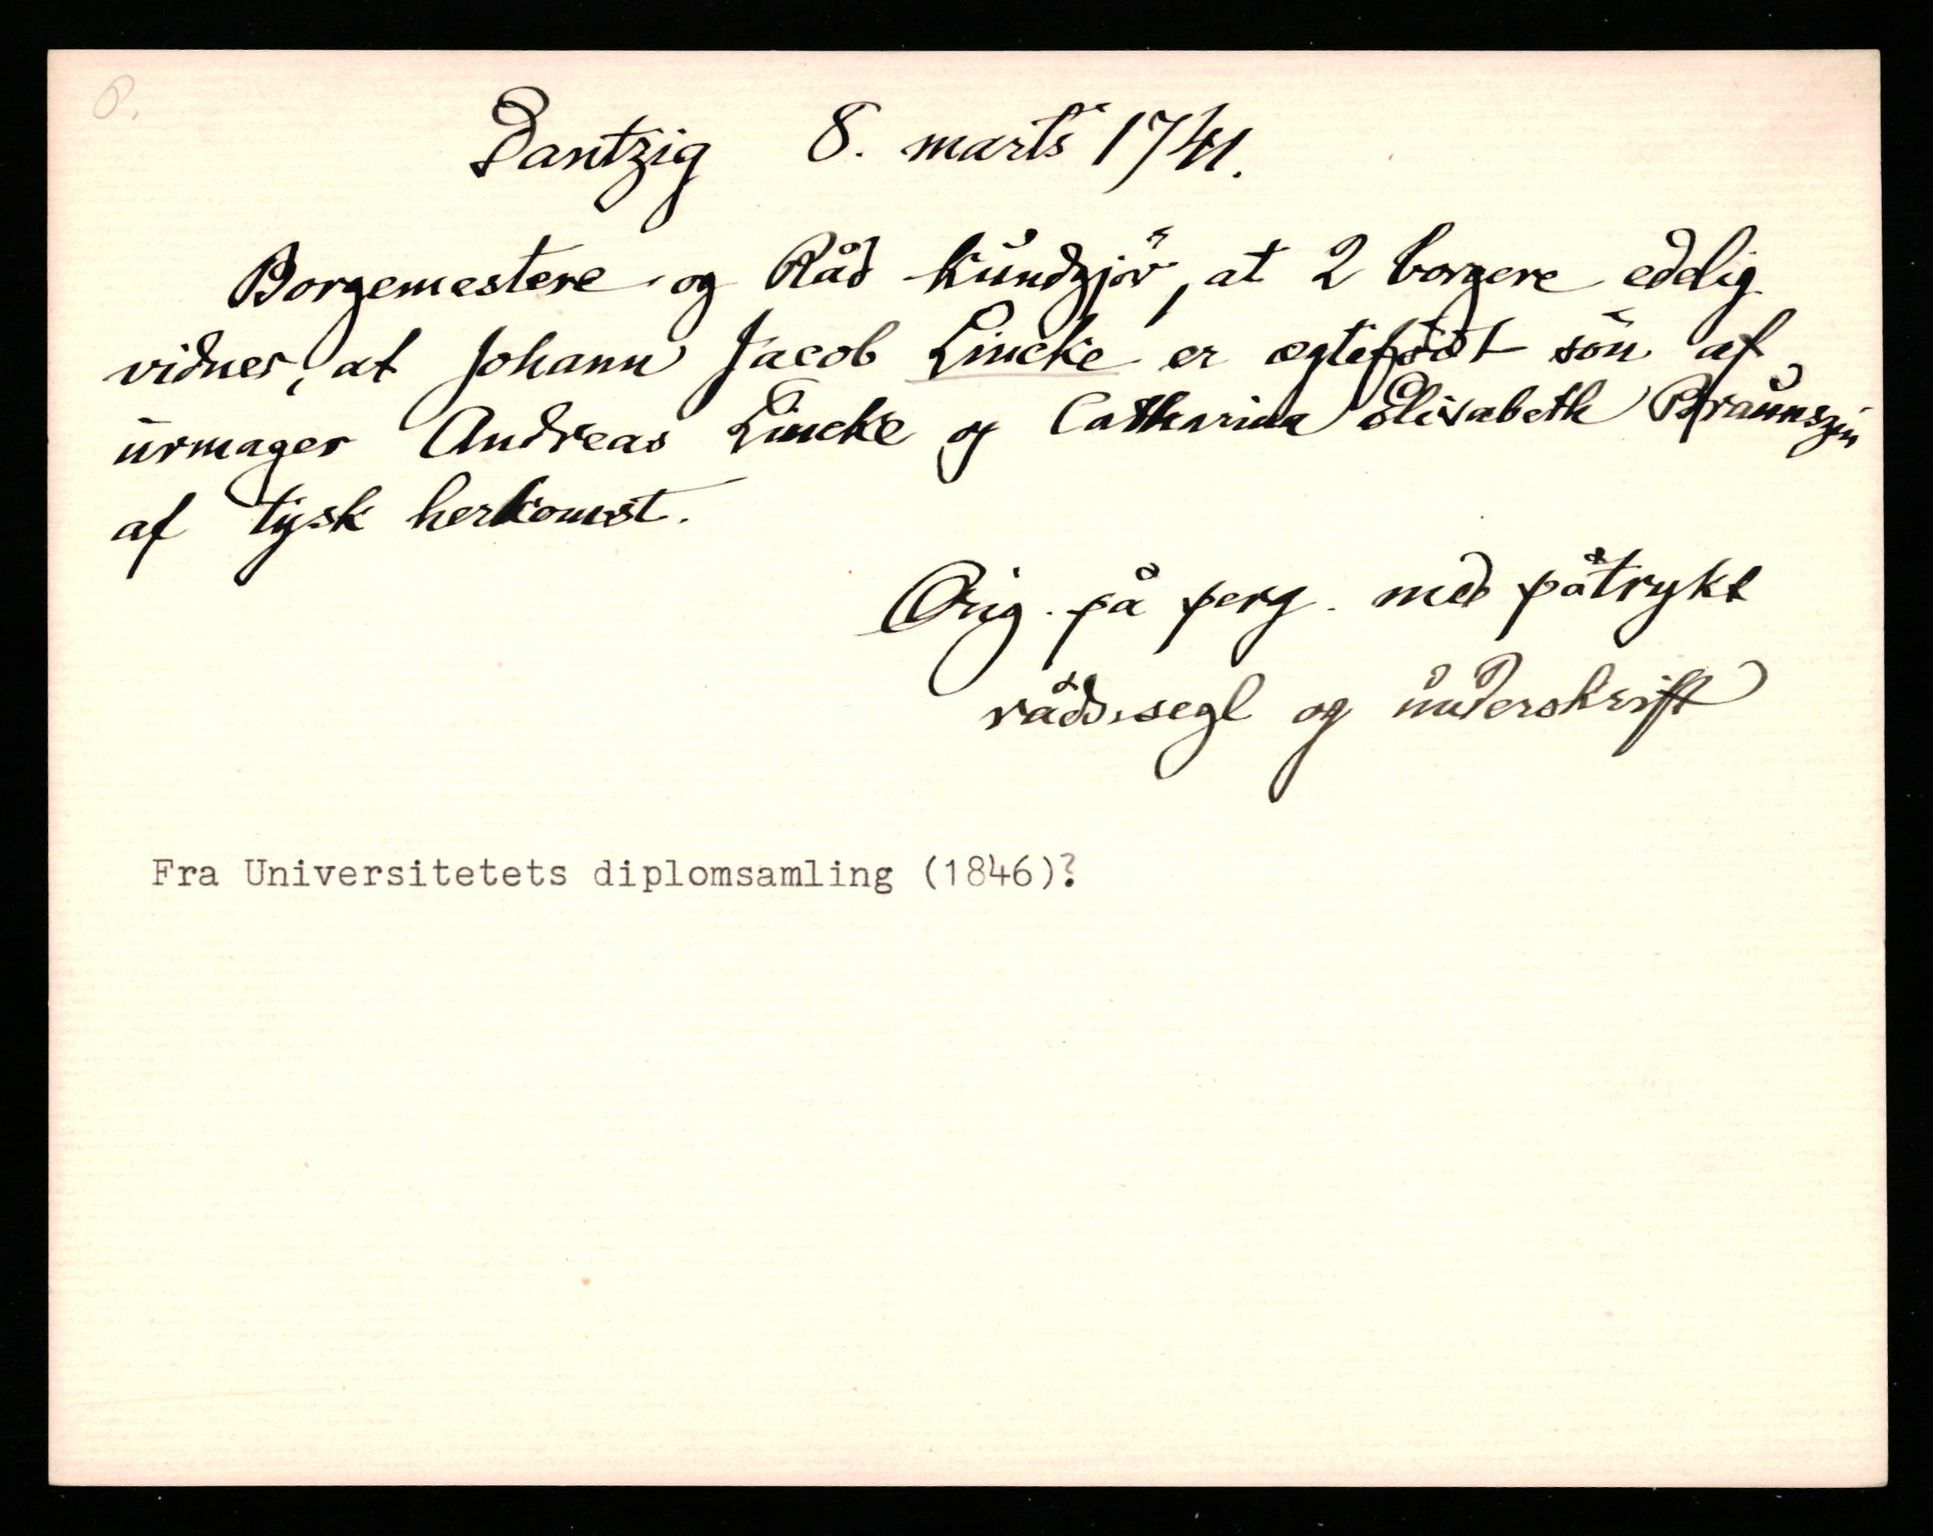 8.
Dantzig 8. marts 1741.
Borgemestere og Råd kundgjör, at 2 borgere edelig
vidner, at Johann Jacob Lincke er ægtefödt sön af
urmager Andreas Lincke og Catharina Elisabeth Braunszin
af tysk herkomst.
Orig. på perg. med påtrykt
rådssegl og underskrift
Fra Universitetets diplomsamling (1846)?